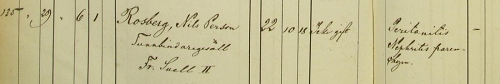 125 " 29 " 6 1 Rosberg, Nils Person 22 10 18 Icke gift Peritonitis —
Tunnbindaregesäll Nephritis paren-
Fr. Suell II chym.